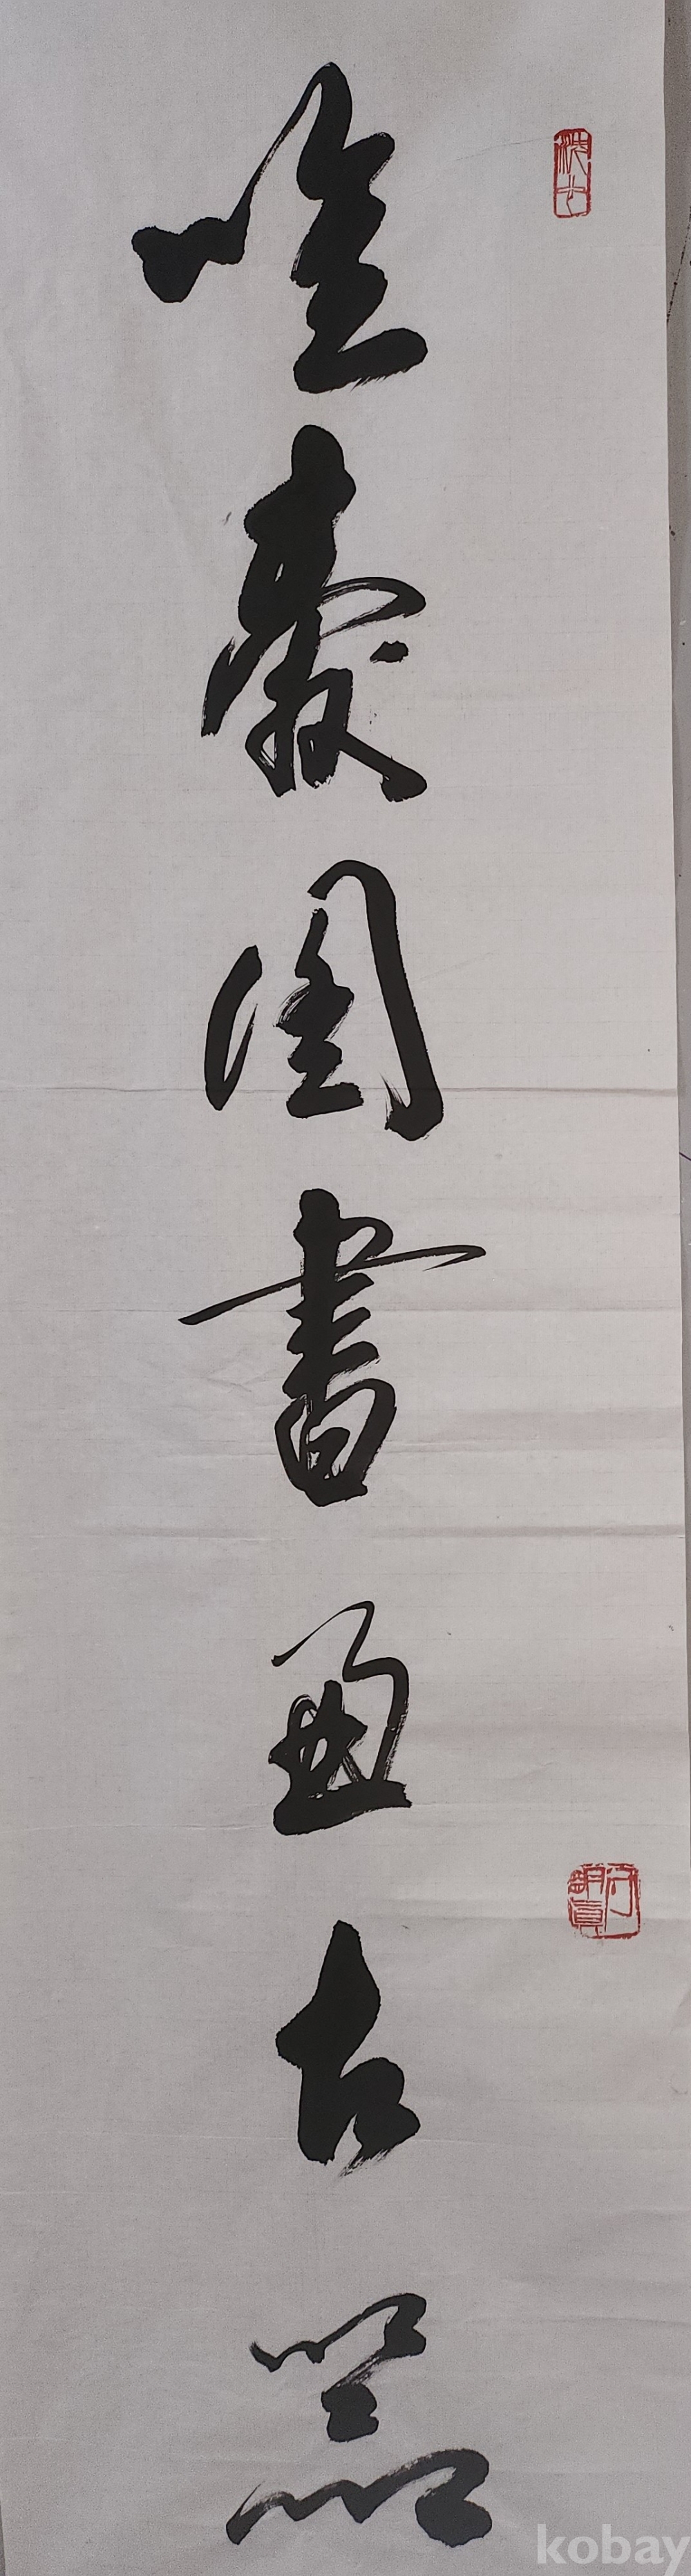 唯愛圖書兼古器
kobay